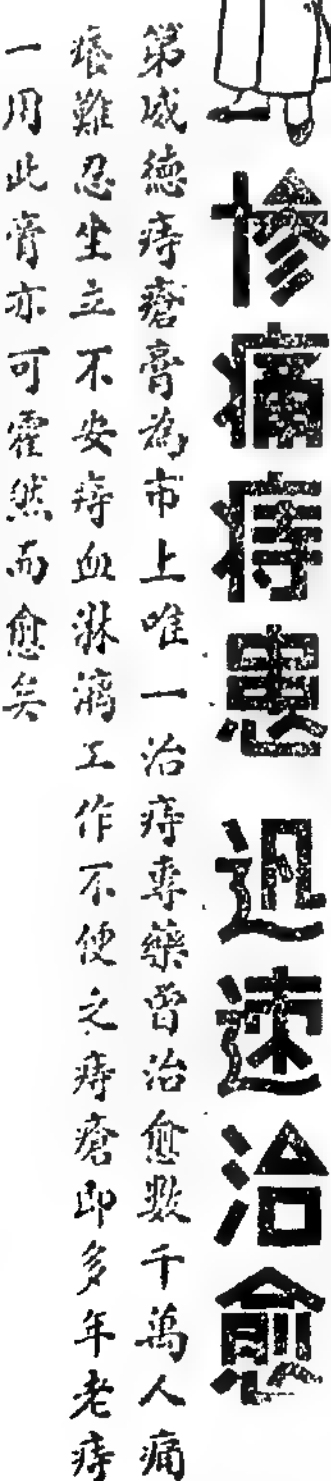 慘痛痔患 迅速治愈
第威德痔瘡膏為市上唯一治痔專藥曾治愈數千萬人痛
癢難忍坐立不安痔血淋漓工作不便之痔瘡即多年老痔
一用此膏亦可霍然而愈矣